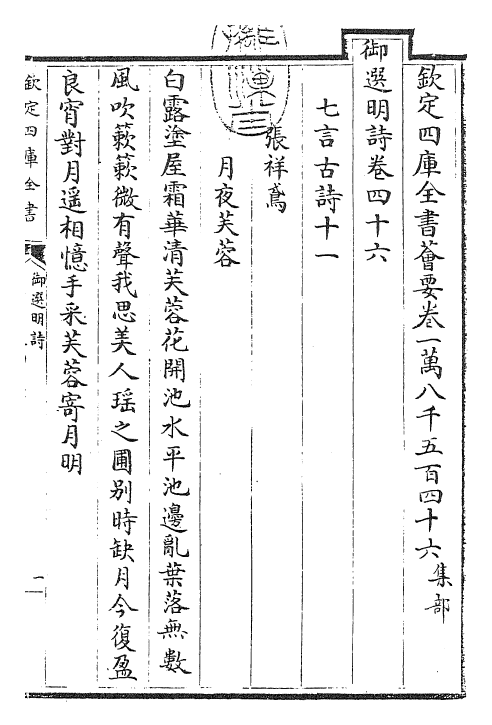 欽定四庫全書薈要卷一萬八千五百四十六 集部
御選明詩卷四十六
七言古詩十一
張祥鳶
月夜芙蓉
白露塗屋霜華清芙蓉花開池水平池邊亂葉落無數
風吹簌簌微有聲我思美人瑶之圃别時缺月今復盈
良宵對月遥相憶手采芙蓉寄月明
欽定四庫全書
御選明詩
一